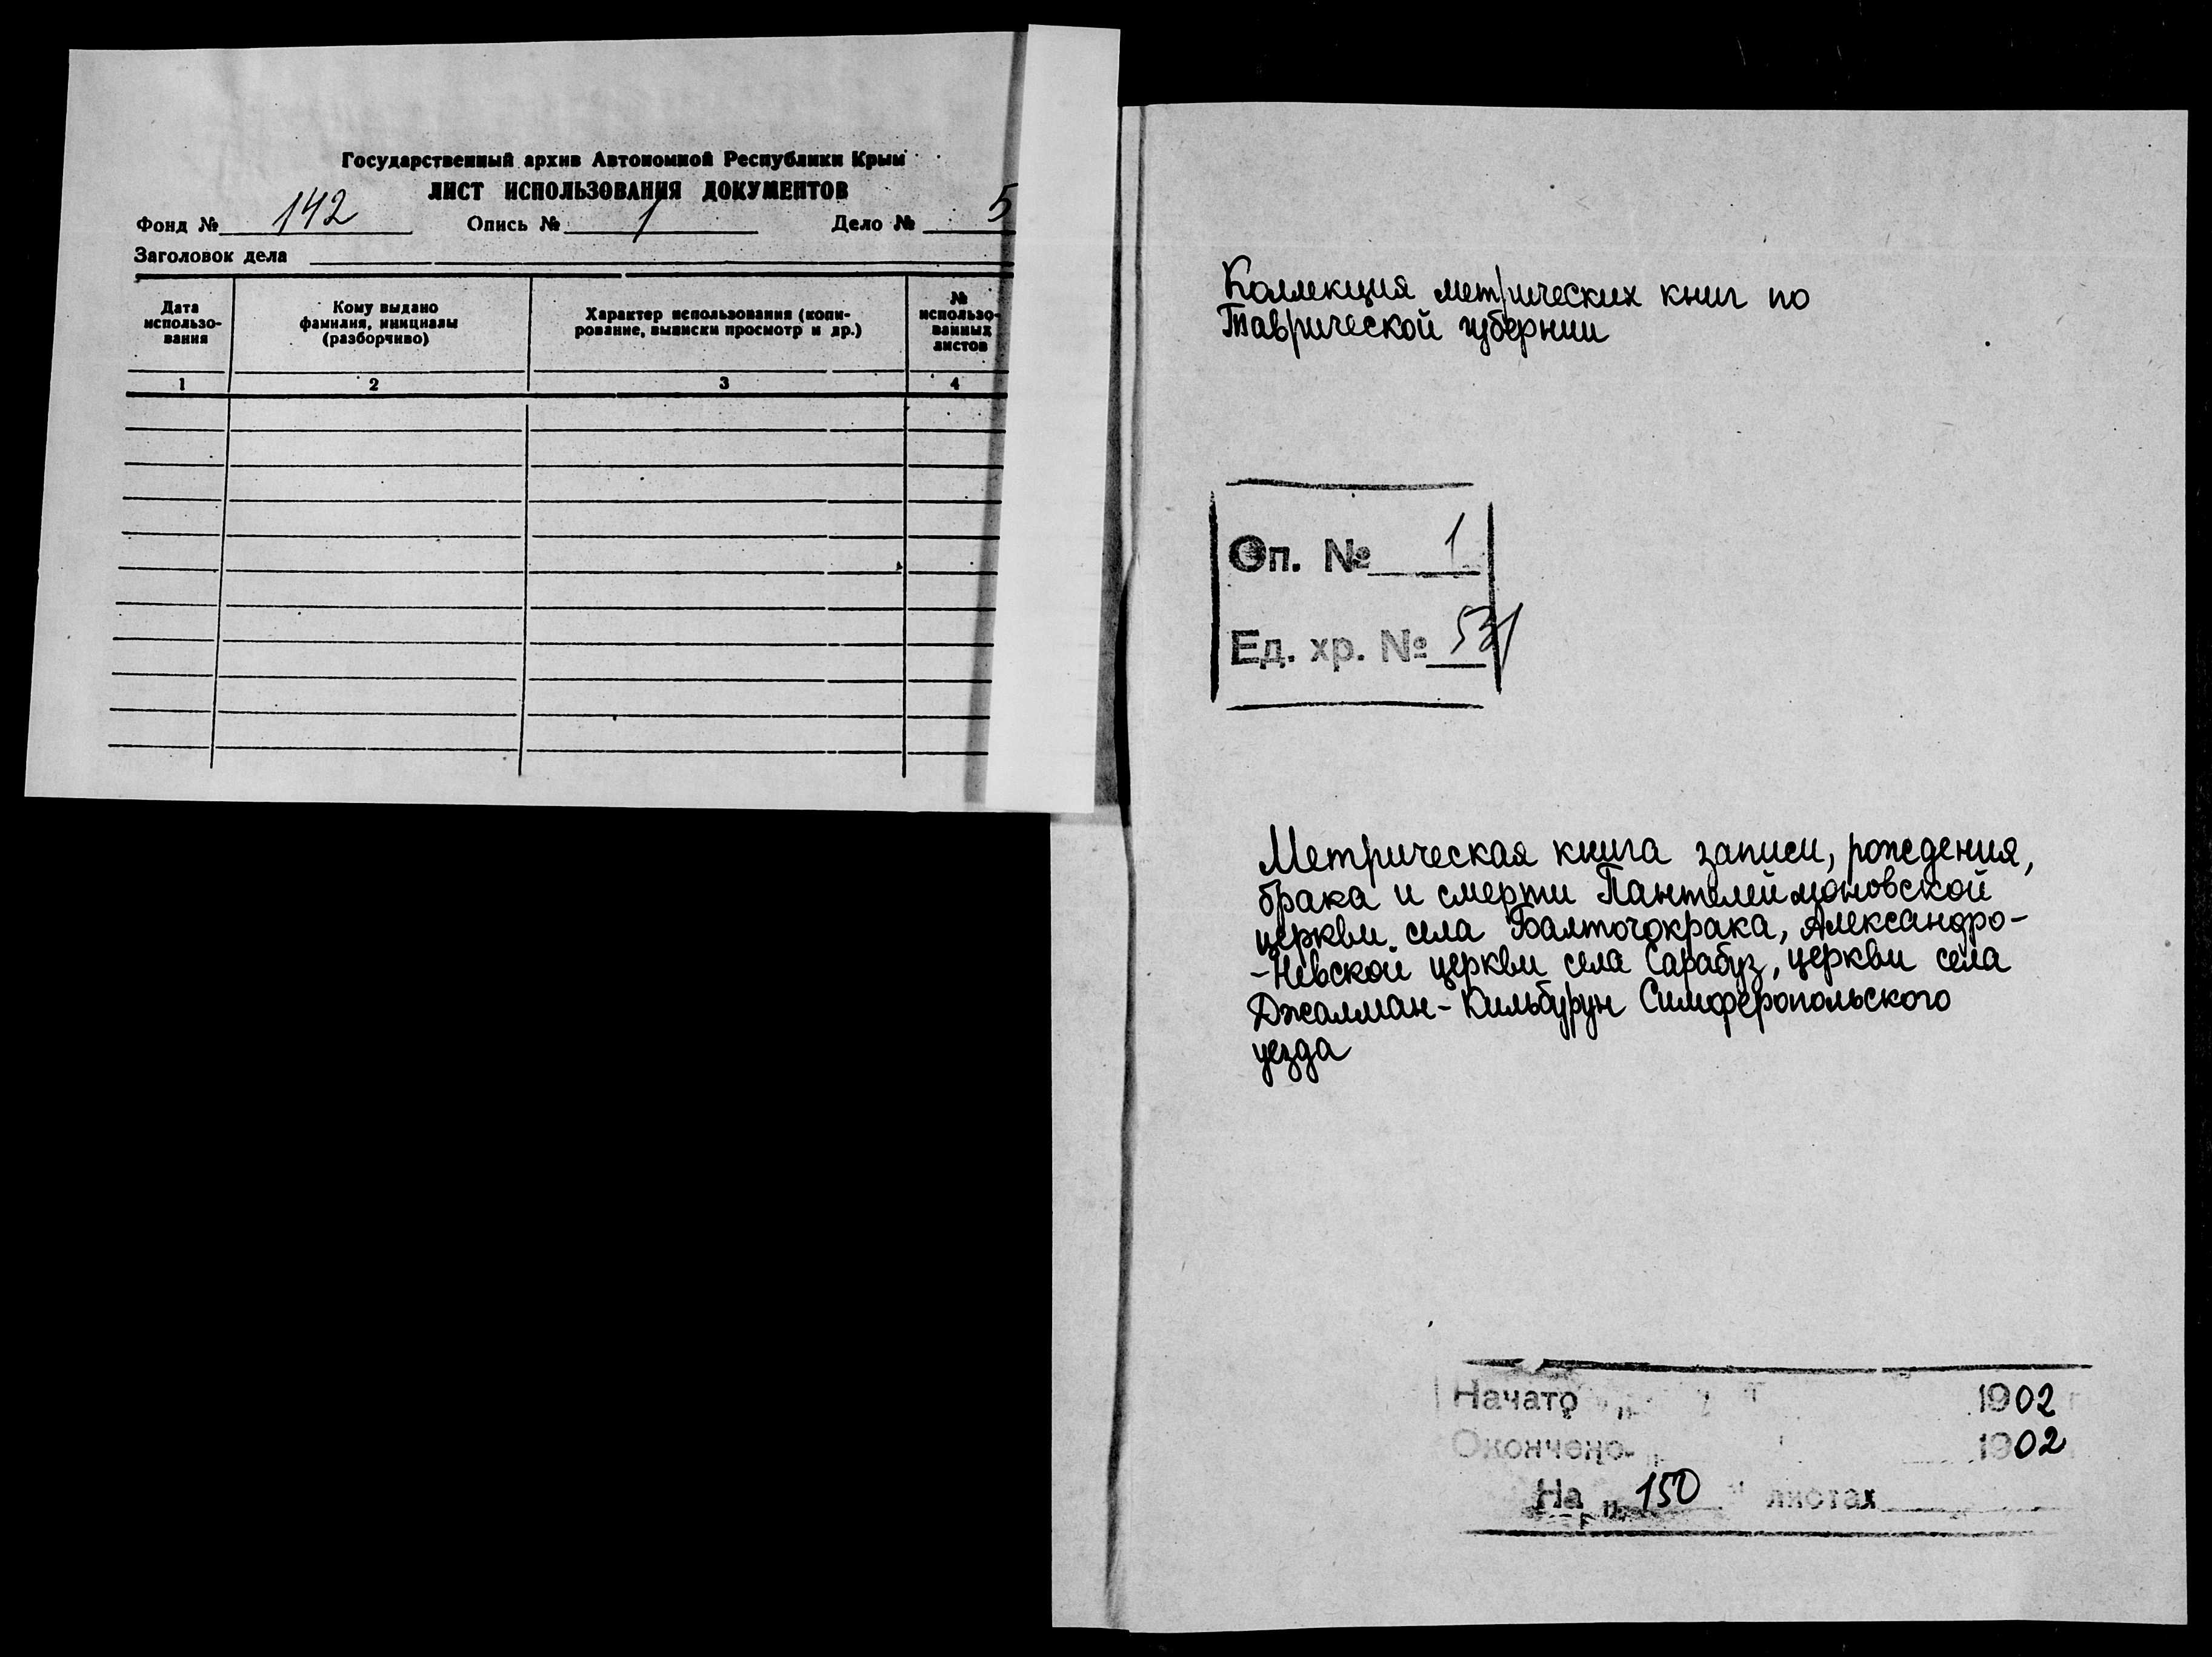 Государственный архив Автономной Республики Крым
ЛИСТ ИСПОЛЬЗОВАНИЯ ДОКУМЕНТОВ
Фонд № 142 Опись № 1 Дело № 5
Заголовок дела
Дата использо-вания
Кому выдано фамилия, инициалы (разборчиво)
Характер использования (копи-рование, выписки просмотр и др.)
№ использо-ванных листов
1 2 3 4
Коллекция метрических книг по
Таврической губернии
Оп. № 1
Ед. хр. № 531
Метрическая книга записи, рождения,
брака и смерти Пантелеймоновской
церкви села Балточокрака, Александро-
-Невской церкви села Сарабуз, церкви села
Джалман-Кильбурун Симферопольского
уезда
Начато 1902
Окончено 1902
На 150 листах